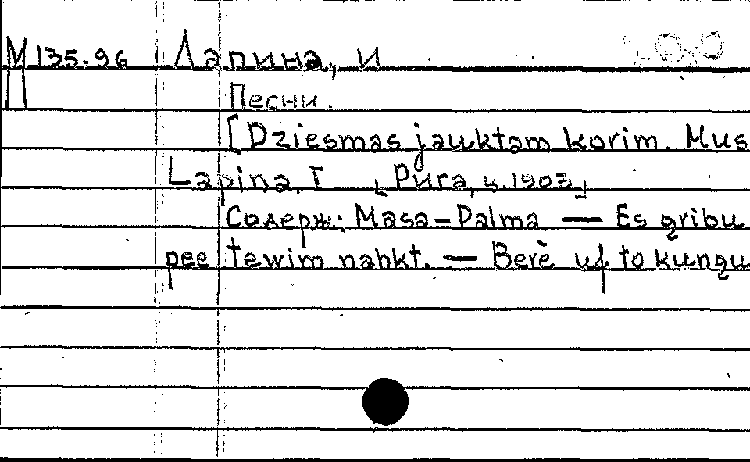 М 135.96 Лапина, И
П Песни.
[Dziesmas jauktam korim. Mus
Lapina, I [Рига, ц. 1903]
Содерж: Masa-Palma — Es gribu
pee tewim nahkt. — Berè uf to kungu